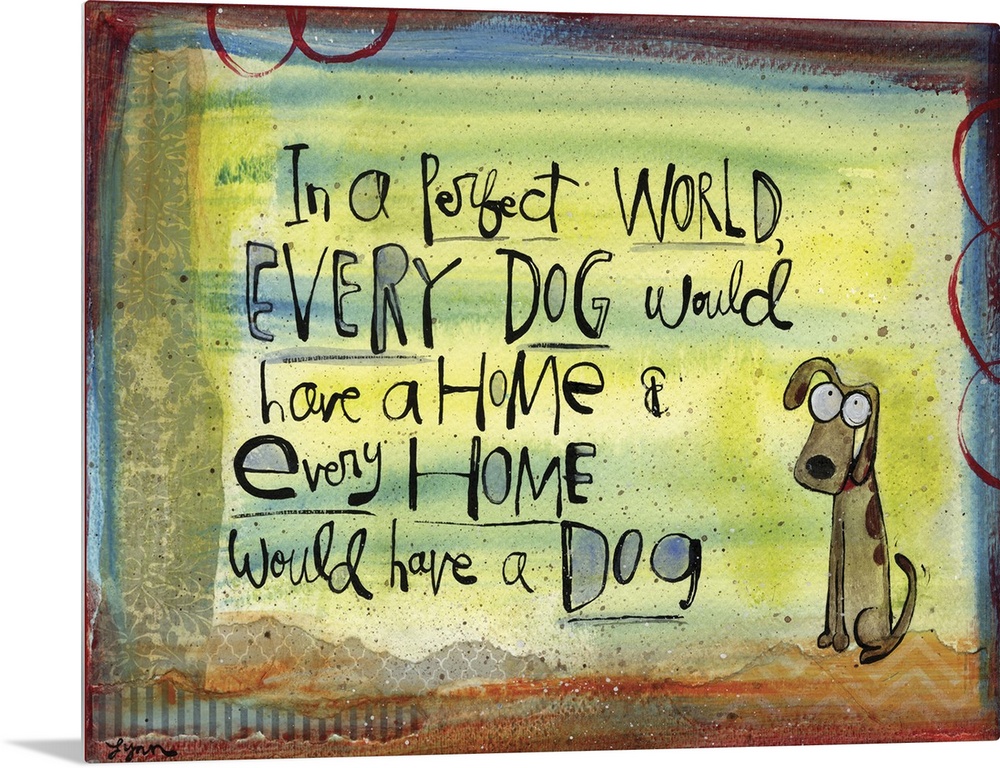 In a Perfect WORLD,
EVERY DOG would
have a HOMe &
every HOME
would have a Dog
Lynn